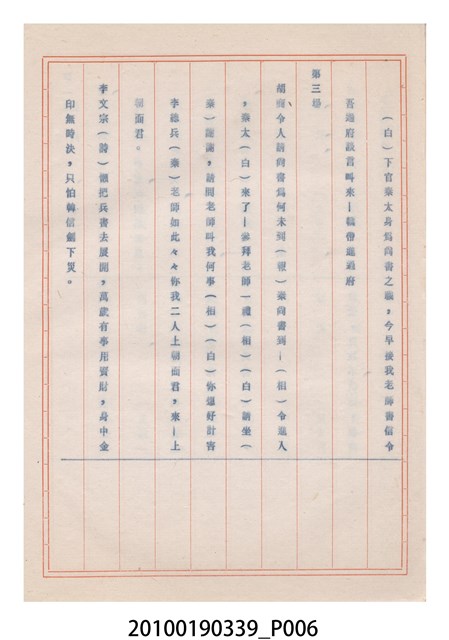 (白)下官秦太身為尚書之職,今早接我老師書信令
吾過府談言叫來—轎帶進過府
第三場
胡 令人請尚書為何未到(報)秦尚書到—(相)令進入
,秦太(白)來了—參拜老師一禮(相)(白)請坐(
秦)謝謝,請問老師叫我何事(相)(白)你爆好計害
李總兵(秦)老師如此々々你我二人上朝面君,來—上
朝面君。
李文宗(詩)懶把兵書去展開,萬歲有事用資財,身中金
印無時決,只怕韓信劍下災。
20100190339_P006